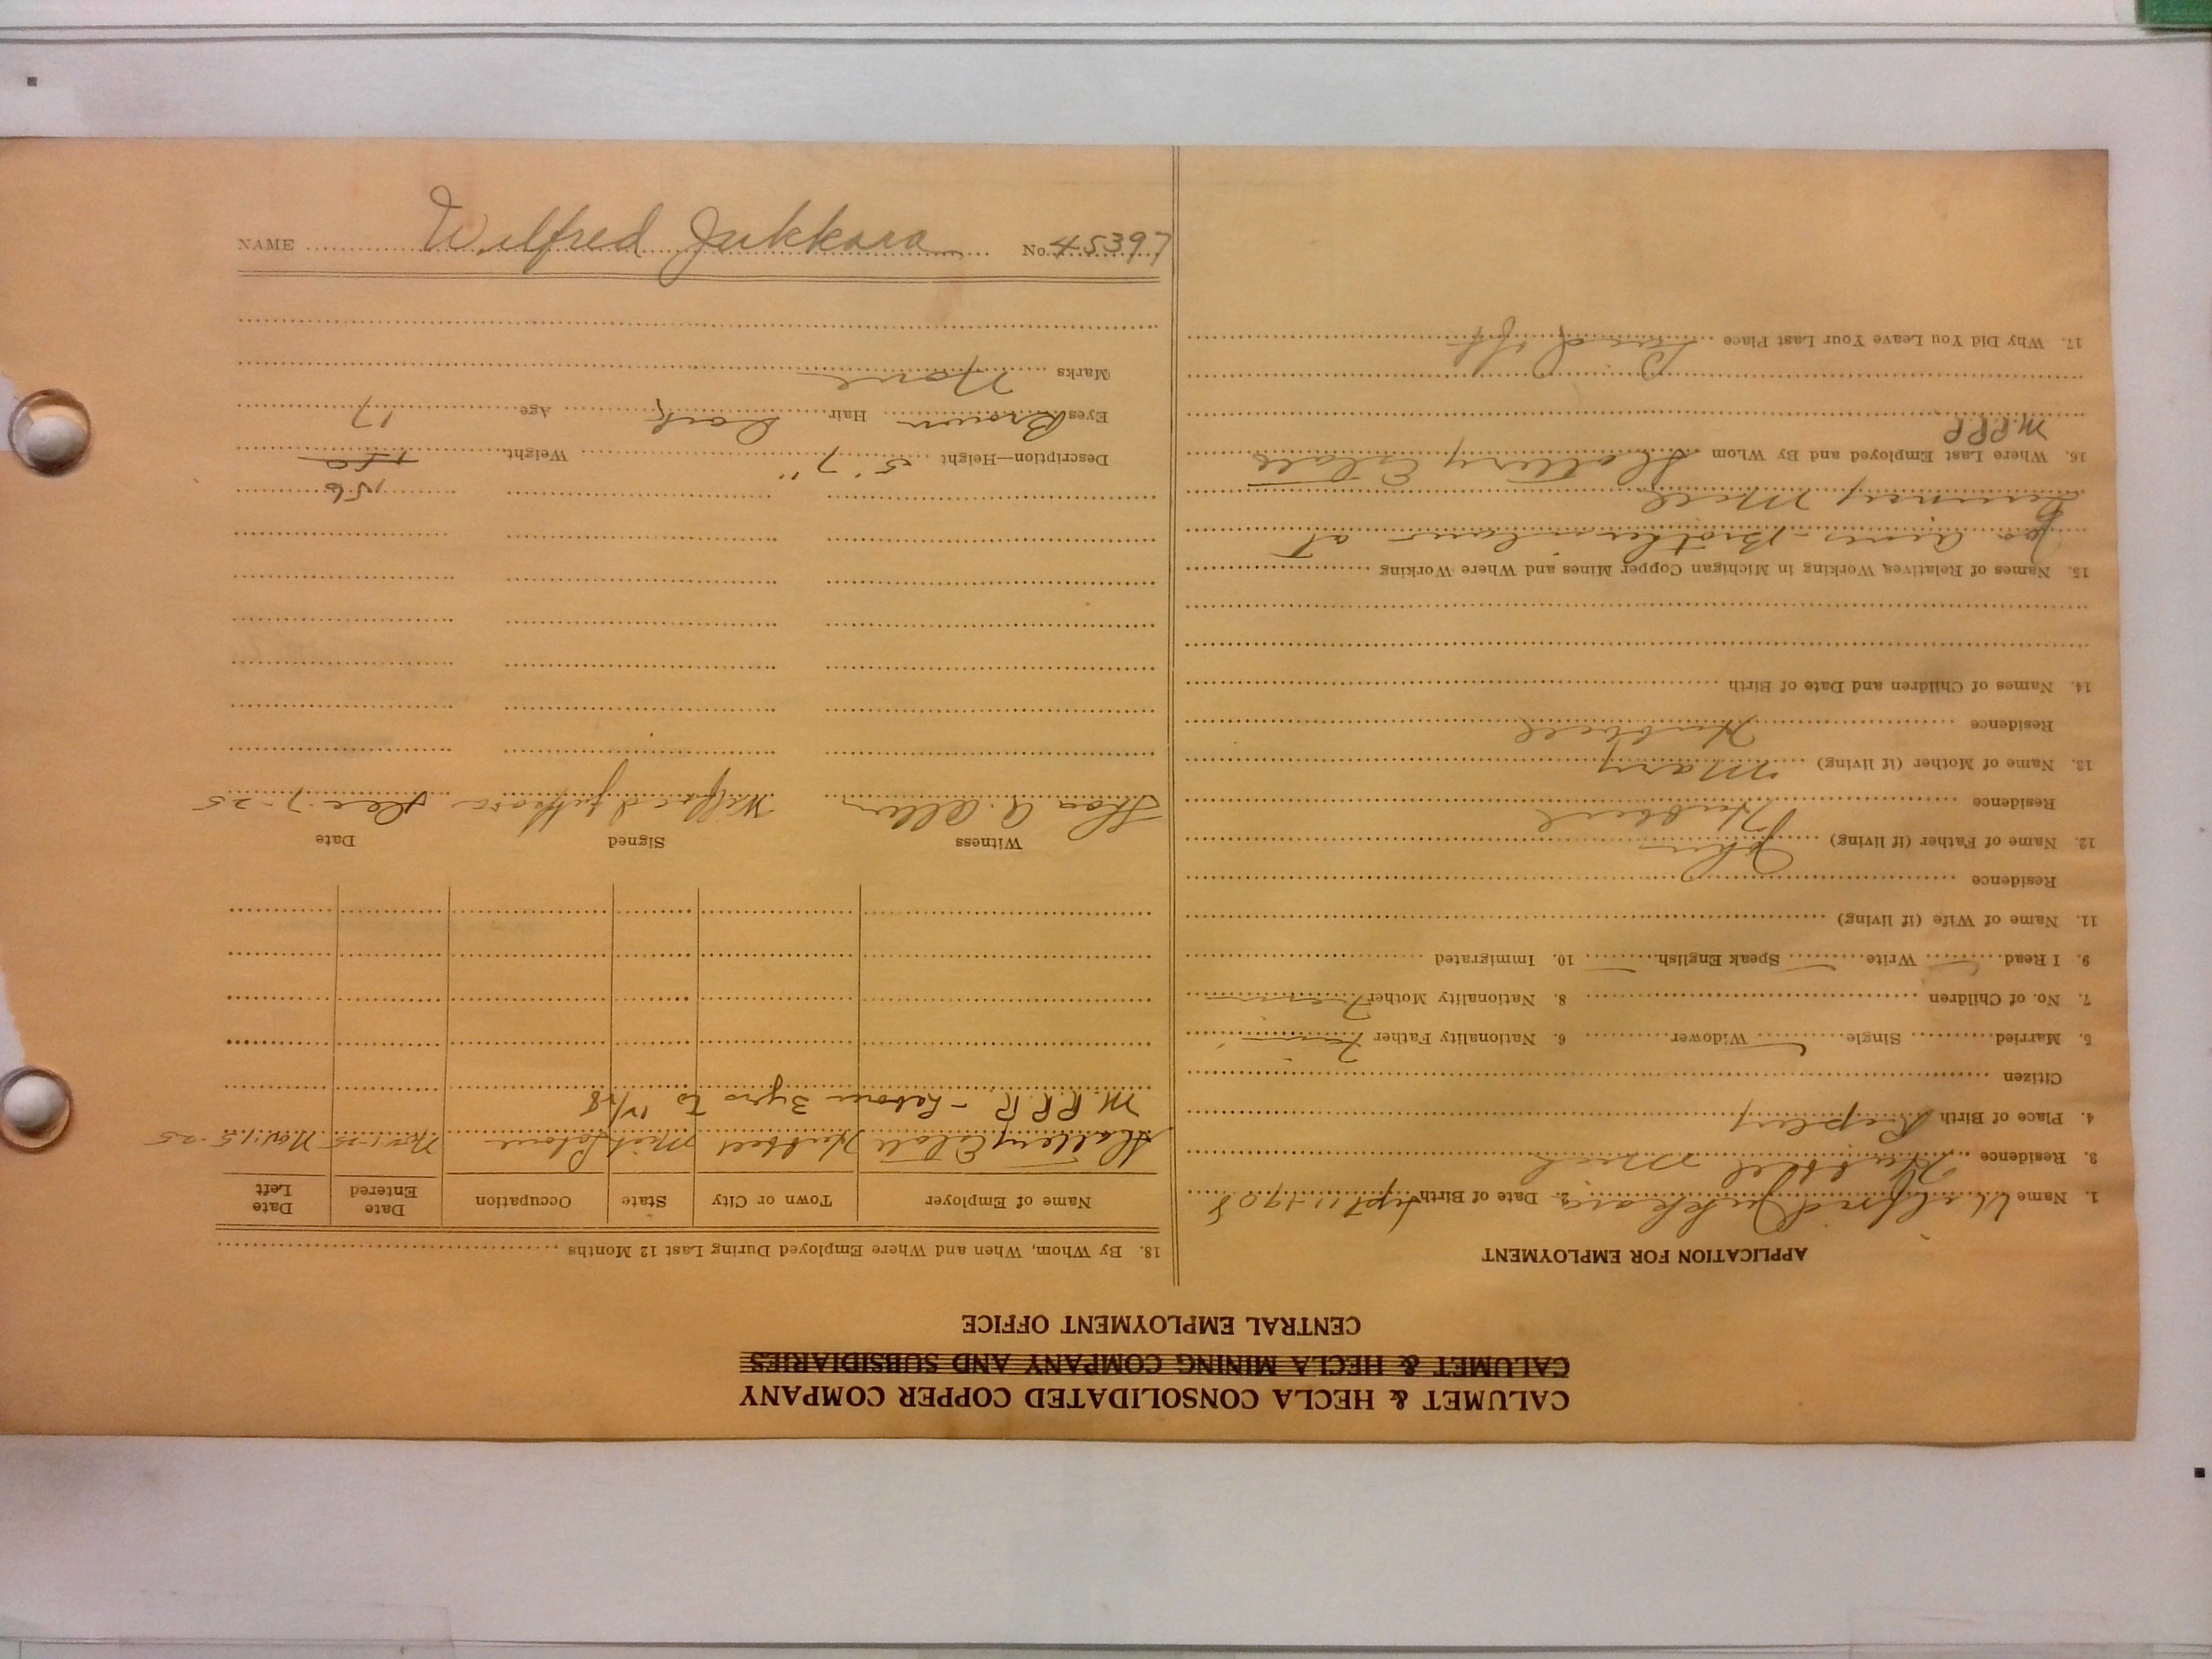 NAME Wilfred Jukkara No. 45397
CALUMET & HECLA CONSOLIDATED COPPER COMPANY
CALUMET & HECLA MINING COMPANY AND SUBSIDIARIES
CENTRAL EMPLOYMENT OFFICE
APPLICATION FOR EMPLOYMENT
1. Name Wilfred Jukkara 2. Date of Birth Sept 11-1908
3. Residence Hubbell Mich
4. Place of Birth Ripley
Citizen
5. Married Single Widower 6. Nationality Father Finnish
7. No. of Children 8. Nationality Mother
9. I Read Write Speak English 10. Immigrated
11. Name of Wife (if living)
Residence
12. Name of Father (if living) John
Residence Hubbell
13. Name of Mother (if living) Mary
Residence Hubbell
14. Names of Children and Date of Birth
15. Names of Relatives Working in Michigan Copper Mines and Where Working
Brother in law at
Quincy Mill
16. Where Last Employed and By Whom Slattery Estate
M.R.R.R
17. Why Did You Leave Your Last Place Laid off
18. By Whom, When and Where Employed During Last 12 Months
Name of Employer Town or City State Occupation Date Entered Date Left
Slattery Estate Hubbell Mich Laborer Nov. 1-25 Nov. 15-25
M.R.R.R. - Laborer 3 yrs to 11/28
Witness Signed Date
Thos A. Allen Wilfred Jukkara Dec. 7-25
156
Description—Height 5' 7" Weight 150
Eyes Brown Hair Dark Age 17
Marks None